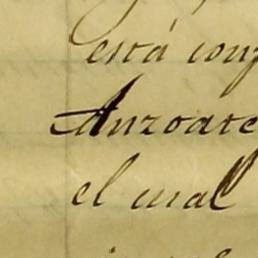 está conf
Anzoate
el cual